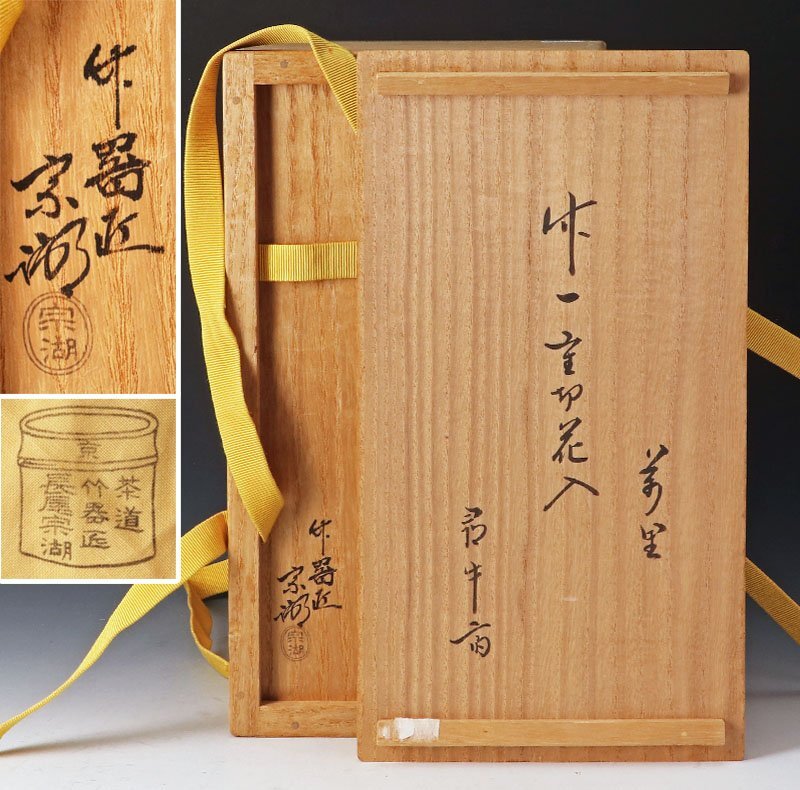 竹器匠
宗湖
宗湖
京
茶道
竹器匠
長廣宗湖
竹一重切花入
萬里
尋牛斎
竹器匠
宗湖
宗湖